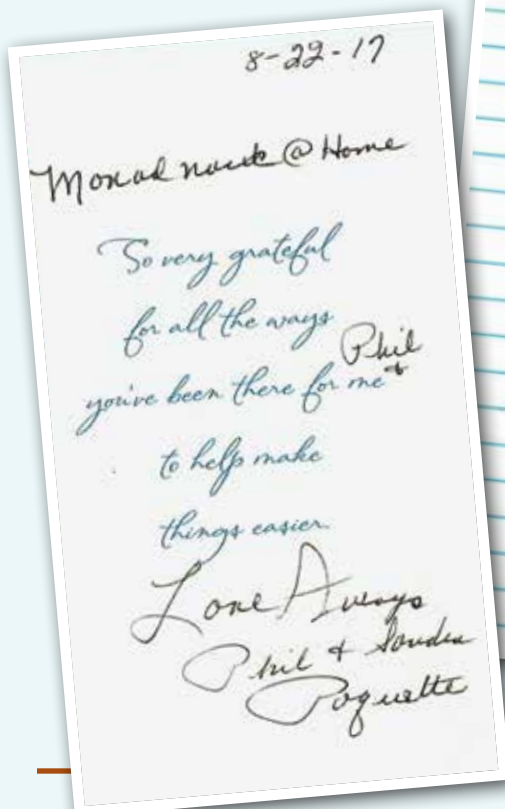 8-22-17
Monadnock @ Home
So very grateful
for all the ways
Phil +
you've been there for me
to help make
things easier.
Love Always
Phil + Sandra
Poquette